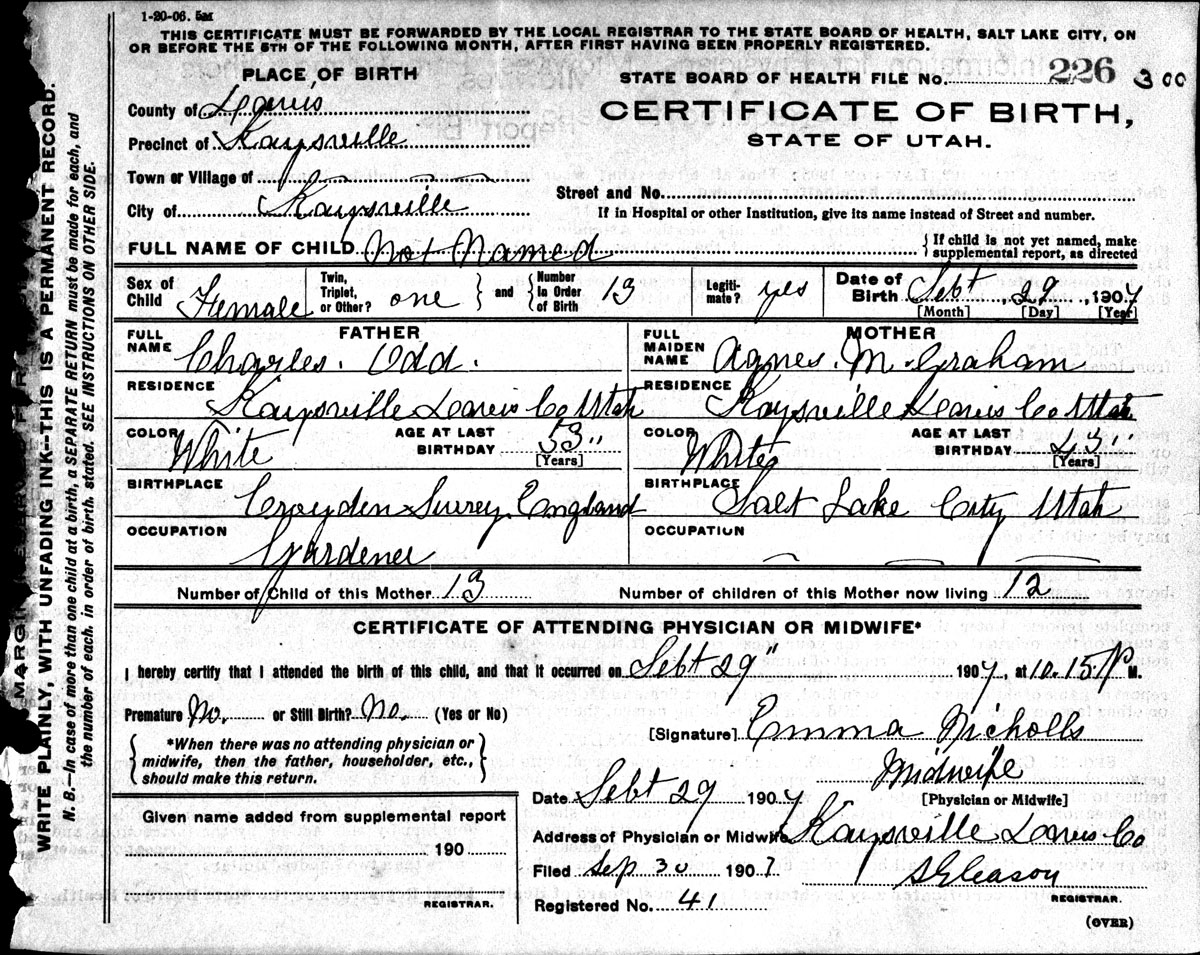 1-20-06. 5M
THIS CERTIFICATE MUST BE FORWARDED BY THE LOCAL REGISTRAR TO THE STATE BOARD OF HEALTH, SALT LAKE CITY, ON
OR BEFORE THE 5TH OF THE FOLLOWING MONTH, AFTER FIRST HAVING BEEN PROPERLY REGISTERED.
PLACE OF BIRTH
STATE BOARD OF HEALTH FILE No. 226 300
County of Davis
CERTIFICATE OF BIRTH,
Precinct of Kaysville
STATE OF UTAH.
Town or Village of
Street and No.
City of Kaysville
If in Hospital or other Institution, give its name instead of Street and number.
FULL NAME OF CHILD Not Named
{ If child is not yet named, make
supplemental report, as directed
Sex of Child Female
Twin, Triplet, or Other? one } and { Number In Order of Birth 13
Legiti-mate? yes
Date of Birth Sebt, 29, 1907
[Month] [Day] [Year]
FATHER
FULL NAME Charles. Odd.
MOTHER
FULL MAIDEN NAME Agnes. M. Graham
RESIDENCE Kaysville Davis Co Utah
RESIDENCE Kaysville Davis Co Utah
COLOR White AGE AT LAST BIRTHDAY 53" [Years]
COLOR White AGE AT LAST BIRTHDAY 43" [Years]
BIRTHPLACE Croyden Surrey England
BIRTHPLACE Salt Lake City Utah
OCCUPATION Gardener
OCCUPATION
Number of Child of this Mother 13 Number of children of this Mother now living 12
CERTIFICATE OF ATTENDING PHYSICIAN OR MIDWIFE*
I hereby certify that I attended the birth of this child, and that it occurred on Sebt 29" 1907, at 10.15 P M.
Premature No. or Still Birth? No. (Yes or No)
[Signature] Emma Nicholls
{ *When there was no attending physician or
midwife, then the father, householder, etc.,
should make this return. }
Midwife
[Physician or Midwife]
Date Sebt 29 1907
Given name added from supplemental report
190
REGISTRAR.
Address of Physician or Midwife Kaysville Davis Co
Filed Sep 30 1907
S Gleason
REGISTRAR.
Registered No. 41
(OVER)
WRITE PLAINLY, WITH UNFADING INK--THIS IS A PERMANENT RECORD.
N. B.—In case of more than one child at a birth, a SEPARATE RETURN must be made for each, and
the number of each, in order of birth, stated. SEE INSTRUCTIONS ON OTHER SIDE.